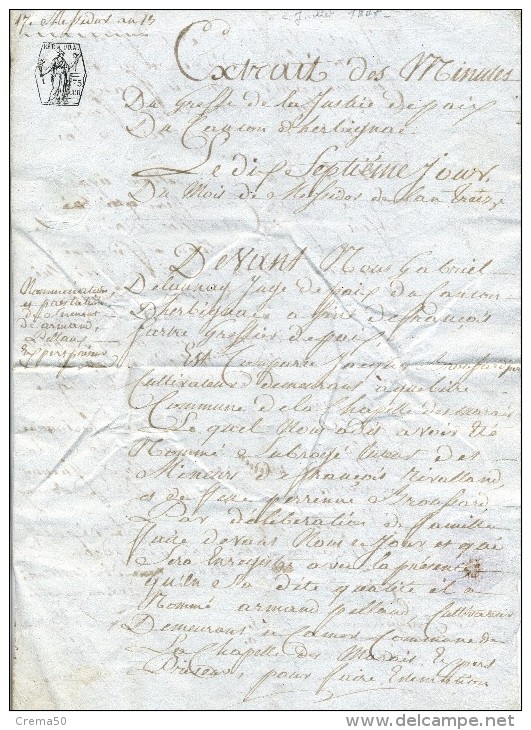 17. Messidor an 13
Juillet 1805
REP. FRA.
75
Extrait des Minutes
Du Greffe de la Justice de paix
Du Canton d'herbignac
Le dix Septième Jour
Du Mois de Messidor de l'an treize
Devant Nous Gabriel
Delaunay Juge de paix du Canton
d'herbignac assisté de françois
greffier de paix
Nommination
et prestation
de serment
de armand
Pelland
Expert priseur
Est Comparu Jacques
Cultivateur demeurant
Commune de la Chapelle des marais
Le quel Nous a dit avoir été
Nommé Subrogé tuteur des
Mineurs de françois Rivalland
et de feue perrinne
Par déliberation de famille
faite devant Nous ce Jour et qui
Sera Enregistré avec la présente
qu'en sa dite qualité il a
Nommé armand pelland Cultivateur
Demeurant à Camer Commune de
La Chapelle des Marais Expert
Priseur, pour faire Estimation
Crema50